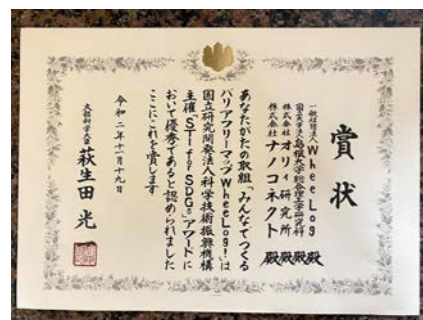 賞状
一般社団法人WheeLog 殿
国立大学法人島根大学総合理工学研究科 殿
株式会社オリィ研究所 殿
株式会社ナノコネクト 殿
あなたがたの取組「みんなでつくる
バリアフリーマップWheeLog!」は
国立研究開発法人科学技術振興機構
主催「STI for SDGs」アワードに
おいて優秀であると認められました
ここにこれを賞します
令和二年十一月十九日
文部科学大臣 萩生田光一